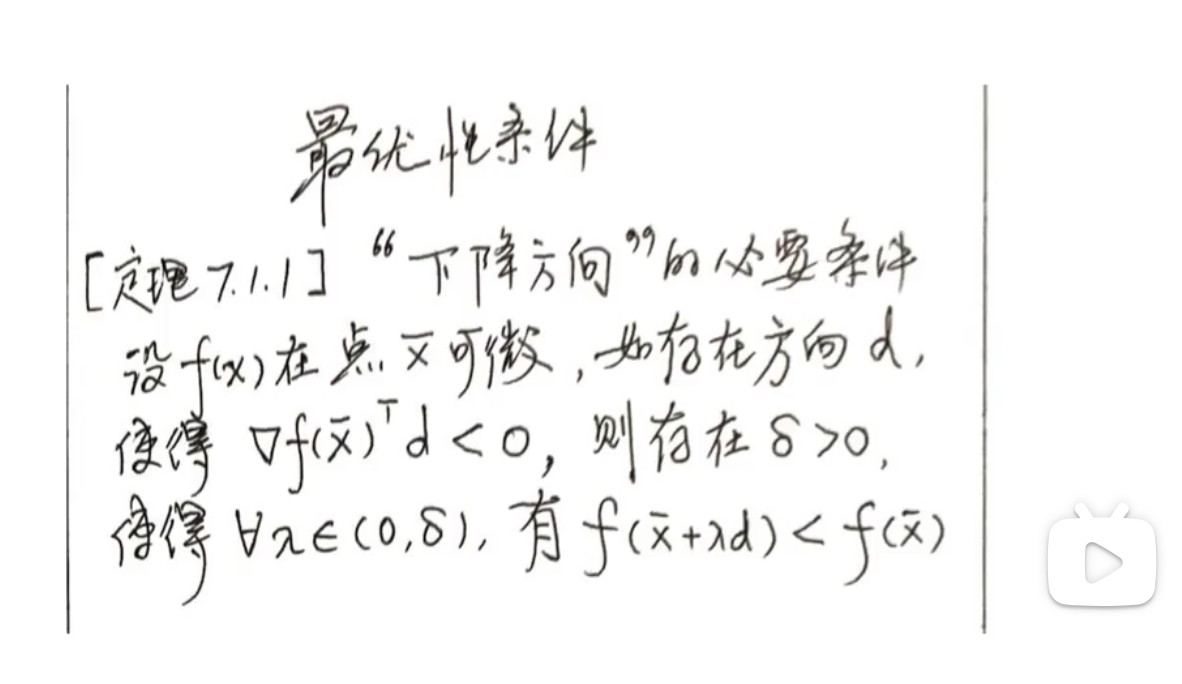 最优性条件
[定理 7.1.1] “下降方向”的必要条件
设 f(x) 在点 x̄ 可微，如存在方向 d，
使得 ∇f(x̄)ᵀd < 0，则存在 δ>0，
使得 ∀λ∈(0,δ)，有 f(x̄+λd) < f(x̄)